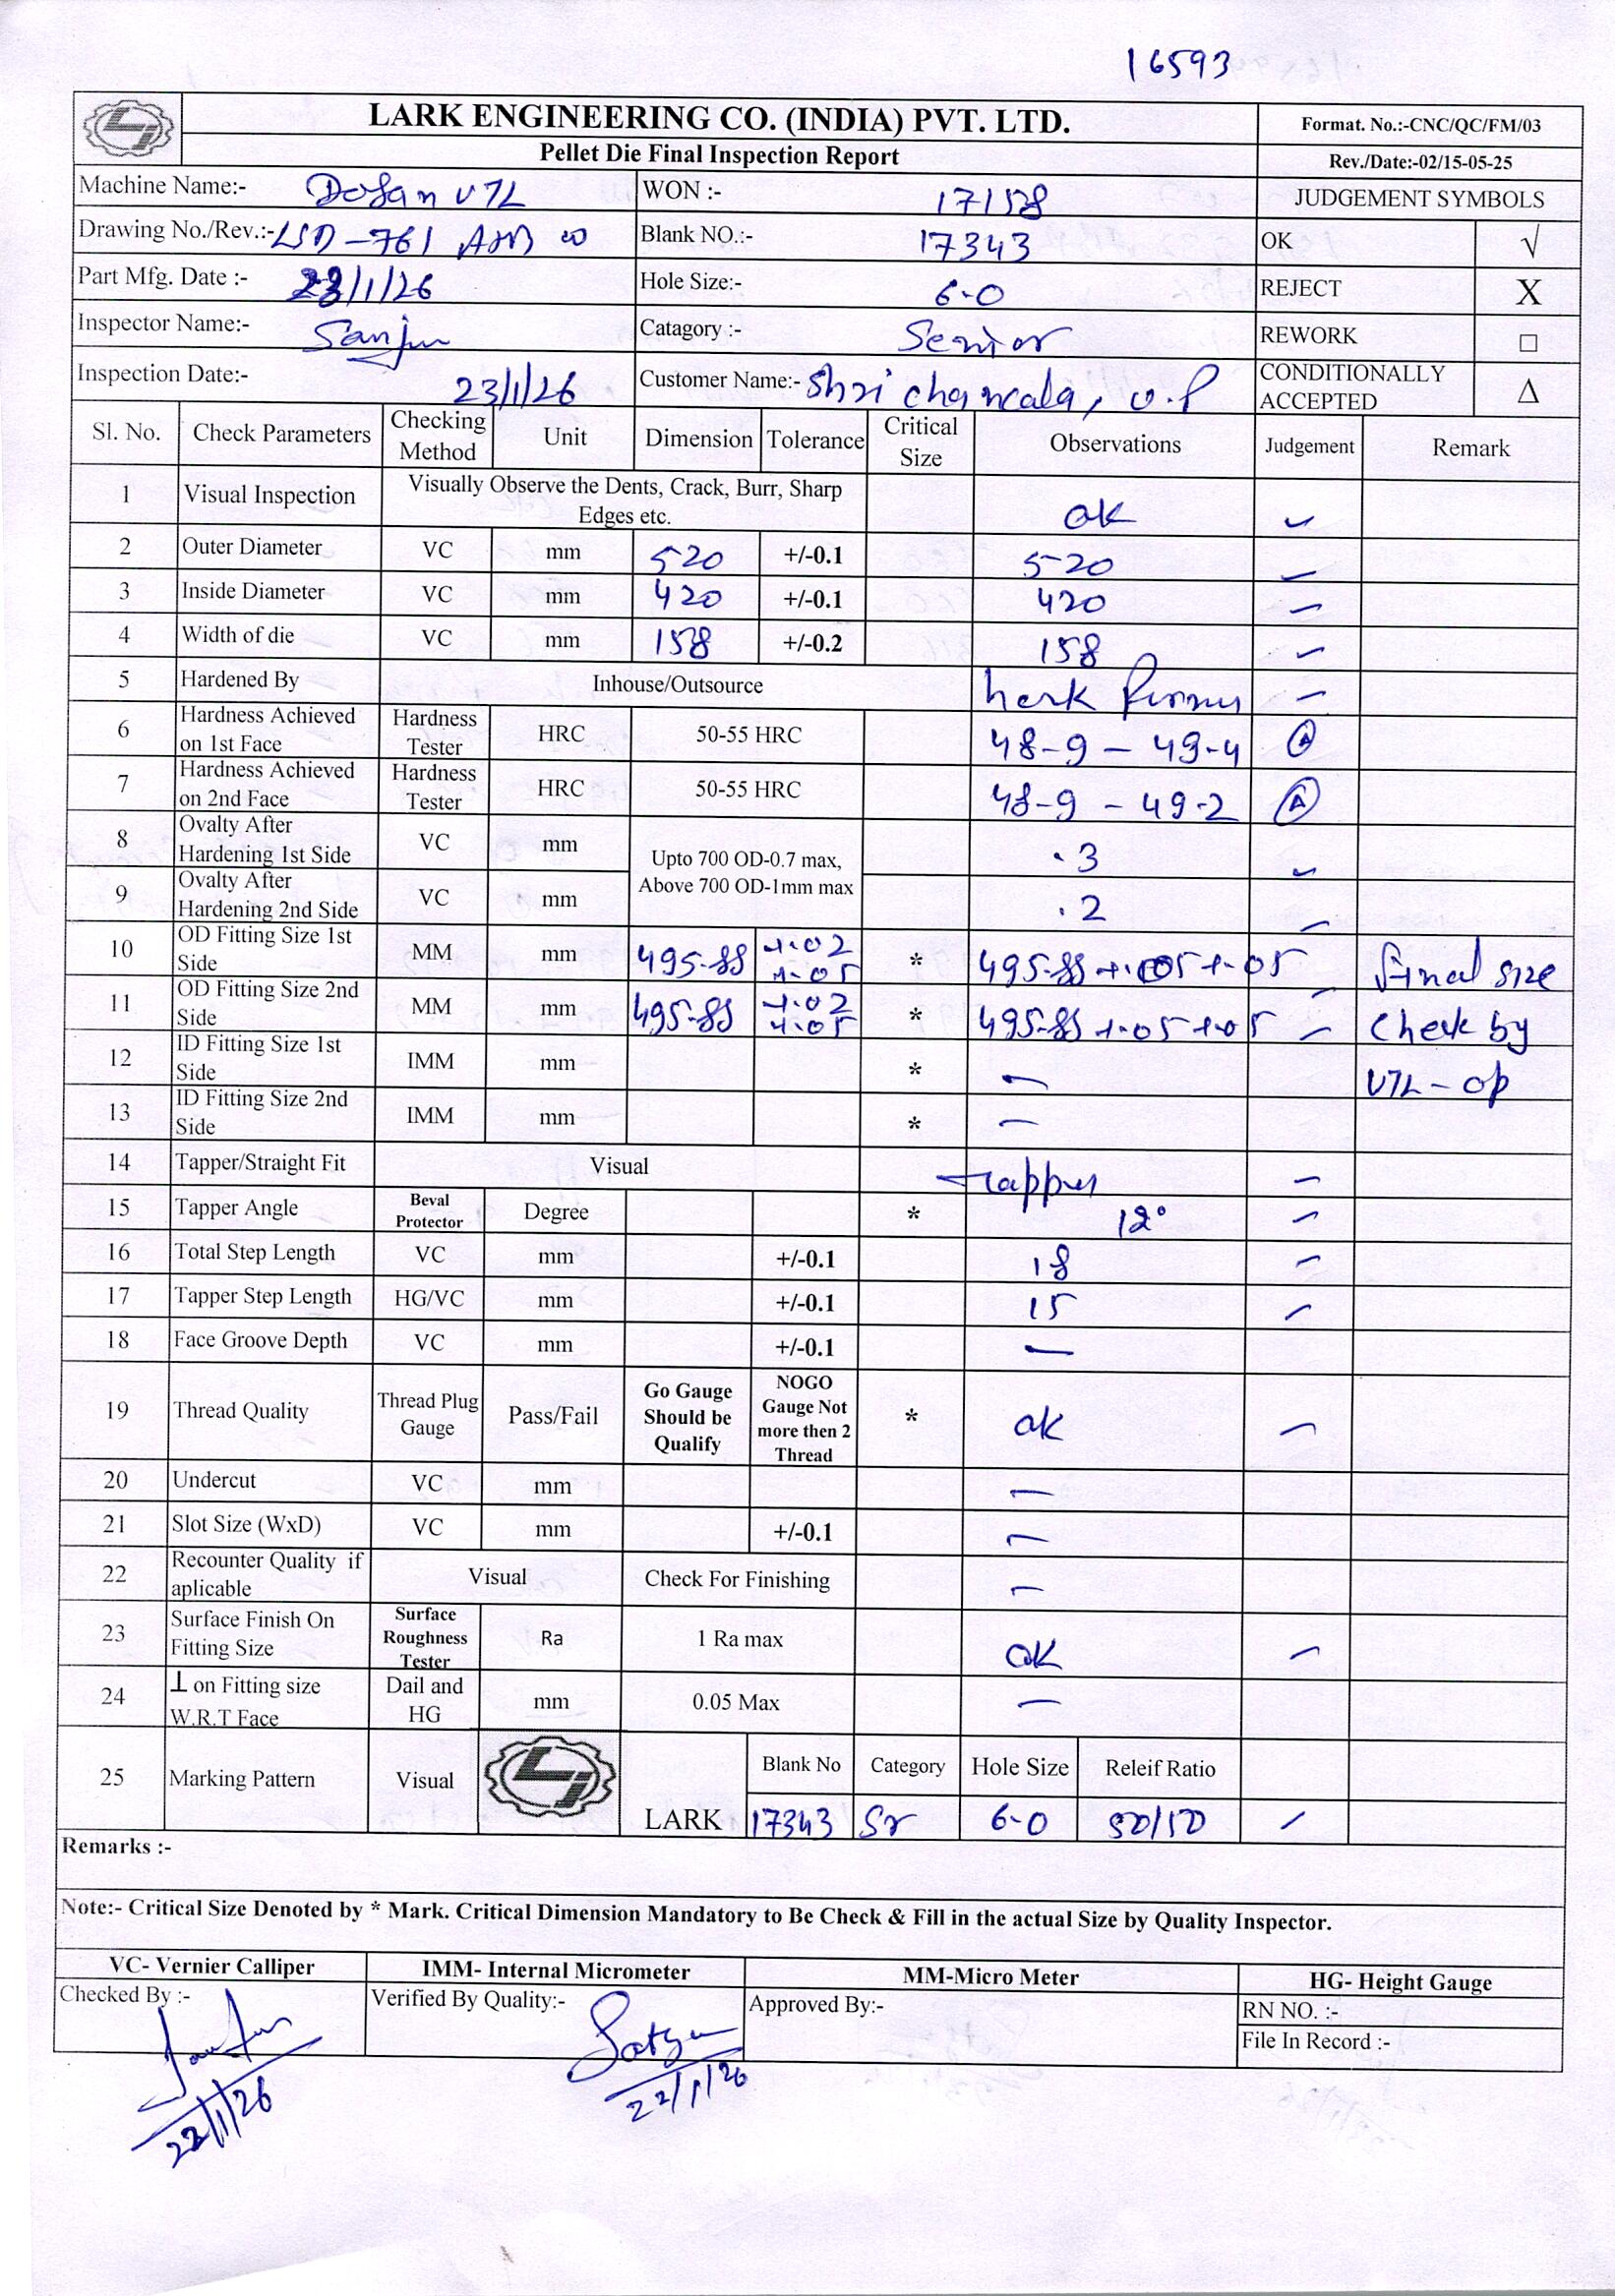 16593
LARK ENGINEERING CO. (INDIA) PVT. LTD.
Format. No.:-CNC/QC/FM/03
Pellet Die Final Inspection Report
Rev./Date:-02/15-05-25
Machine Name:- Dosan VTL WON :- 17158 JUDGEMENT SYMBOLS
Drawing No./Rev.:- LSD-761 Blank NO.:- 17343 OK √
Part Mfg. Date :- 23/1/26 Hole Size:- 6.0 REJECT X
Inspector Name:- Sanju Catagory :- Senior REWORK □
Inspection Date:- 23/1/26 Customer Name:- Shri U.P CONDITIONALLY ACCEPTED Δ
Sl. No. Check Parameters Checking Method Unit Dimension Tolerance Critical Size Observations Judgement Remark
1 Visual Inspection Visually Observe the Dents, Crack, Burr, Sharp Edges etc. ok ✓
2 Outer Diameter VC mm 520 +/-0.1 520 ✓
3 Inside Diameter VC mm 420 +/-0.1 420 ✓
4 Width of die VC mm 158 +/-0.2 158 ✓
5 Hardened By Inhouse/Outsource ✓
6 Hardness Achieved on 1st Face Hardness Tester HRC 50-55 HRC 48-9 - 49-4
7 Hardness Achieved on 2nd Face Hardness Tester HRC 50-55 HRC 48-9 - 49-2
8 Ovalty After Hardening 1st Side VC mm Upto 700 OD-0.7 max, Above 700 OD-1mm max .3 ✓
9 Ovalty After Hardening 2nd Side VC mm .2 ✓
10 OD Fitting Size 1st Side MM mm 495.88 +.02 +.05 * 495.88 +.05 +.05 ✓ Final size
11 OD Fitting Size 2nd Side MM mm 495.88 +.02 +.05 * 495.88 +.05 +.05 ✓ Check by
12 ID Fitting Size 1st Side IMM mm * — VTL-op
13 ID Fitting Size 2nd Side IMM mm * —
14 Tapper/Straight Fit Visual Tapper ✓
15 Tapper Angle Beval Protector Degree * 12° ✓
16 Total Step Length VC mm +/-0.1 18 ✓
17 Tapper Step Length HG/VC mm +/-0.1 15 ✓
18 Face Groove Depth VC mm +/-0.1 —
19 Thread Quality Thread Plug Gauge Pass/Fail Go Gauge Should be Qualify NOGO Gauge Not more then 2 Thread * ok ✓
20 Undercut VC mm —
21 Slot Size (WxD) VC mm +/-0.1 —
22 Recounter Quality if aplicable Visual Check For Finishing —
23 Surface Finish On Fitting Size Surface Roughness Tester Ra 1 Ra max ok ✓
24 ⊥ on Fitting size W.R.T Face Dail and HG mm 0.05 Max —
25 Marking Pattern Visual LARK Blank No Category Hole Size Releif Ratio
17343 Sr 6.0 50/50 ✓
Remarks :-
Note:- Critical Size Denoted by * Mark. Critical Dimension Mandatory to Be Check & Fill in the actual Size by Quality Inspector.
VC- Vernier Calliper IMM- Internal Micrometer MM-Micro Meter HG- Height Gauge
Checked By :- Verified By Quality:- Approved By:- RN NO. :-
File In Record :-
22/1/26 22/1/26